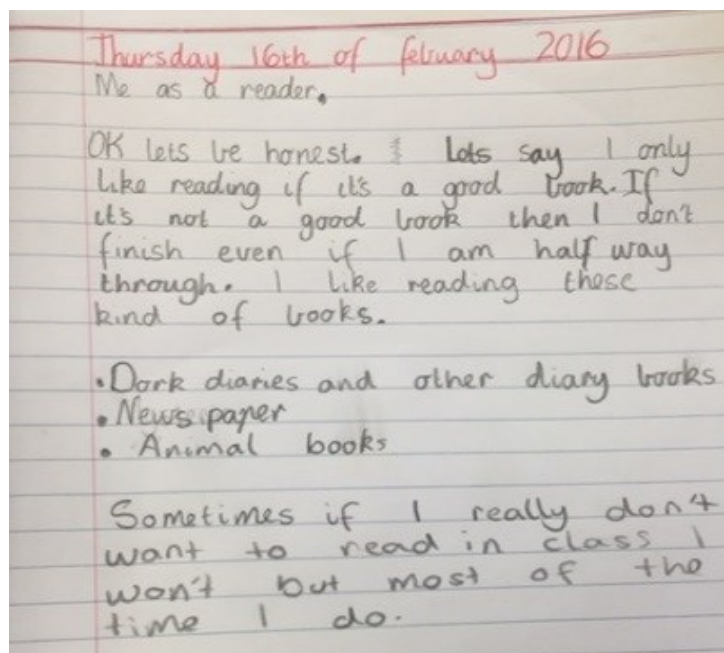 Thursday 16th of february 2016
Me as a reader.
OK lets be honest. lets say I only
like reading if it's a good book. If
it's not a good book then I don't
finish even if I am half way
through. I like reading these
kind of books.
• Dork diaries and other diary books
• News paper
• Animal books
Sometimes if I really don't
want to read in class I
won't but most of the
time I do.